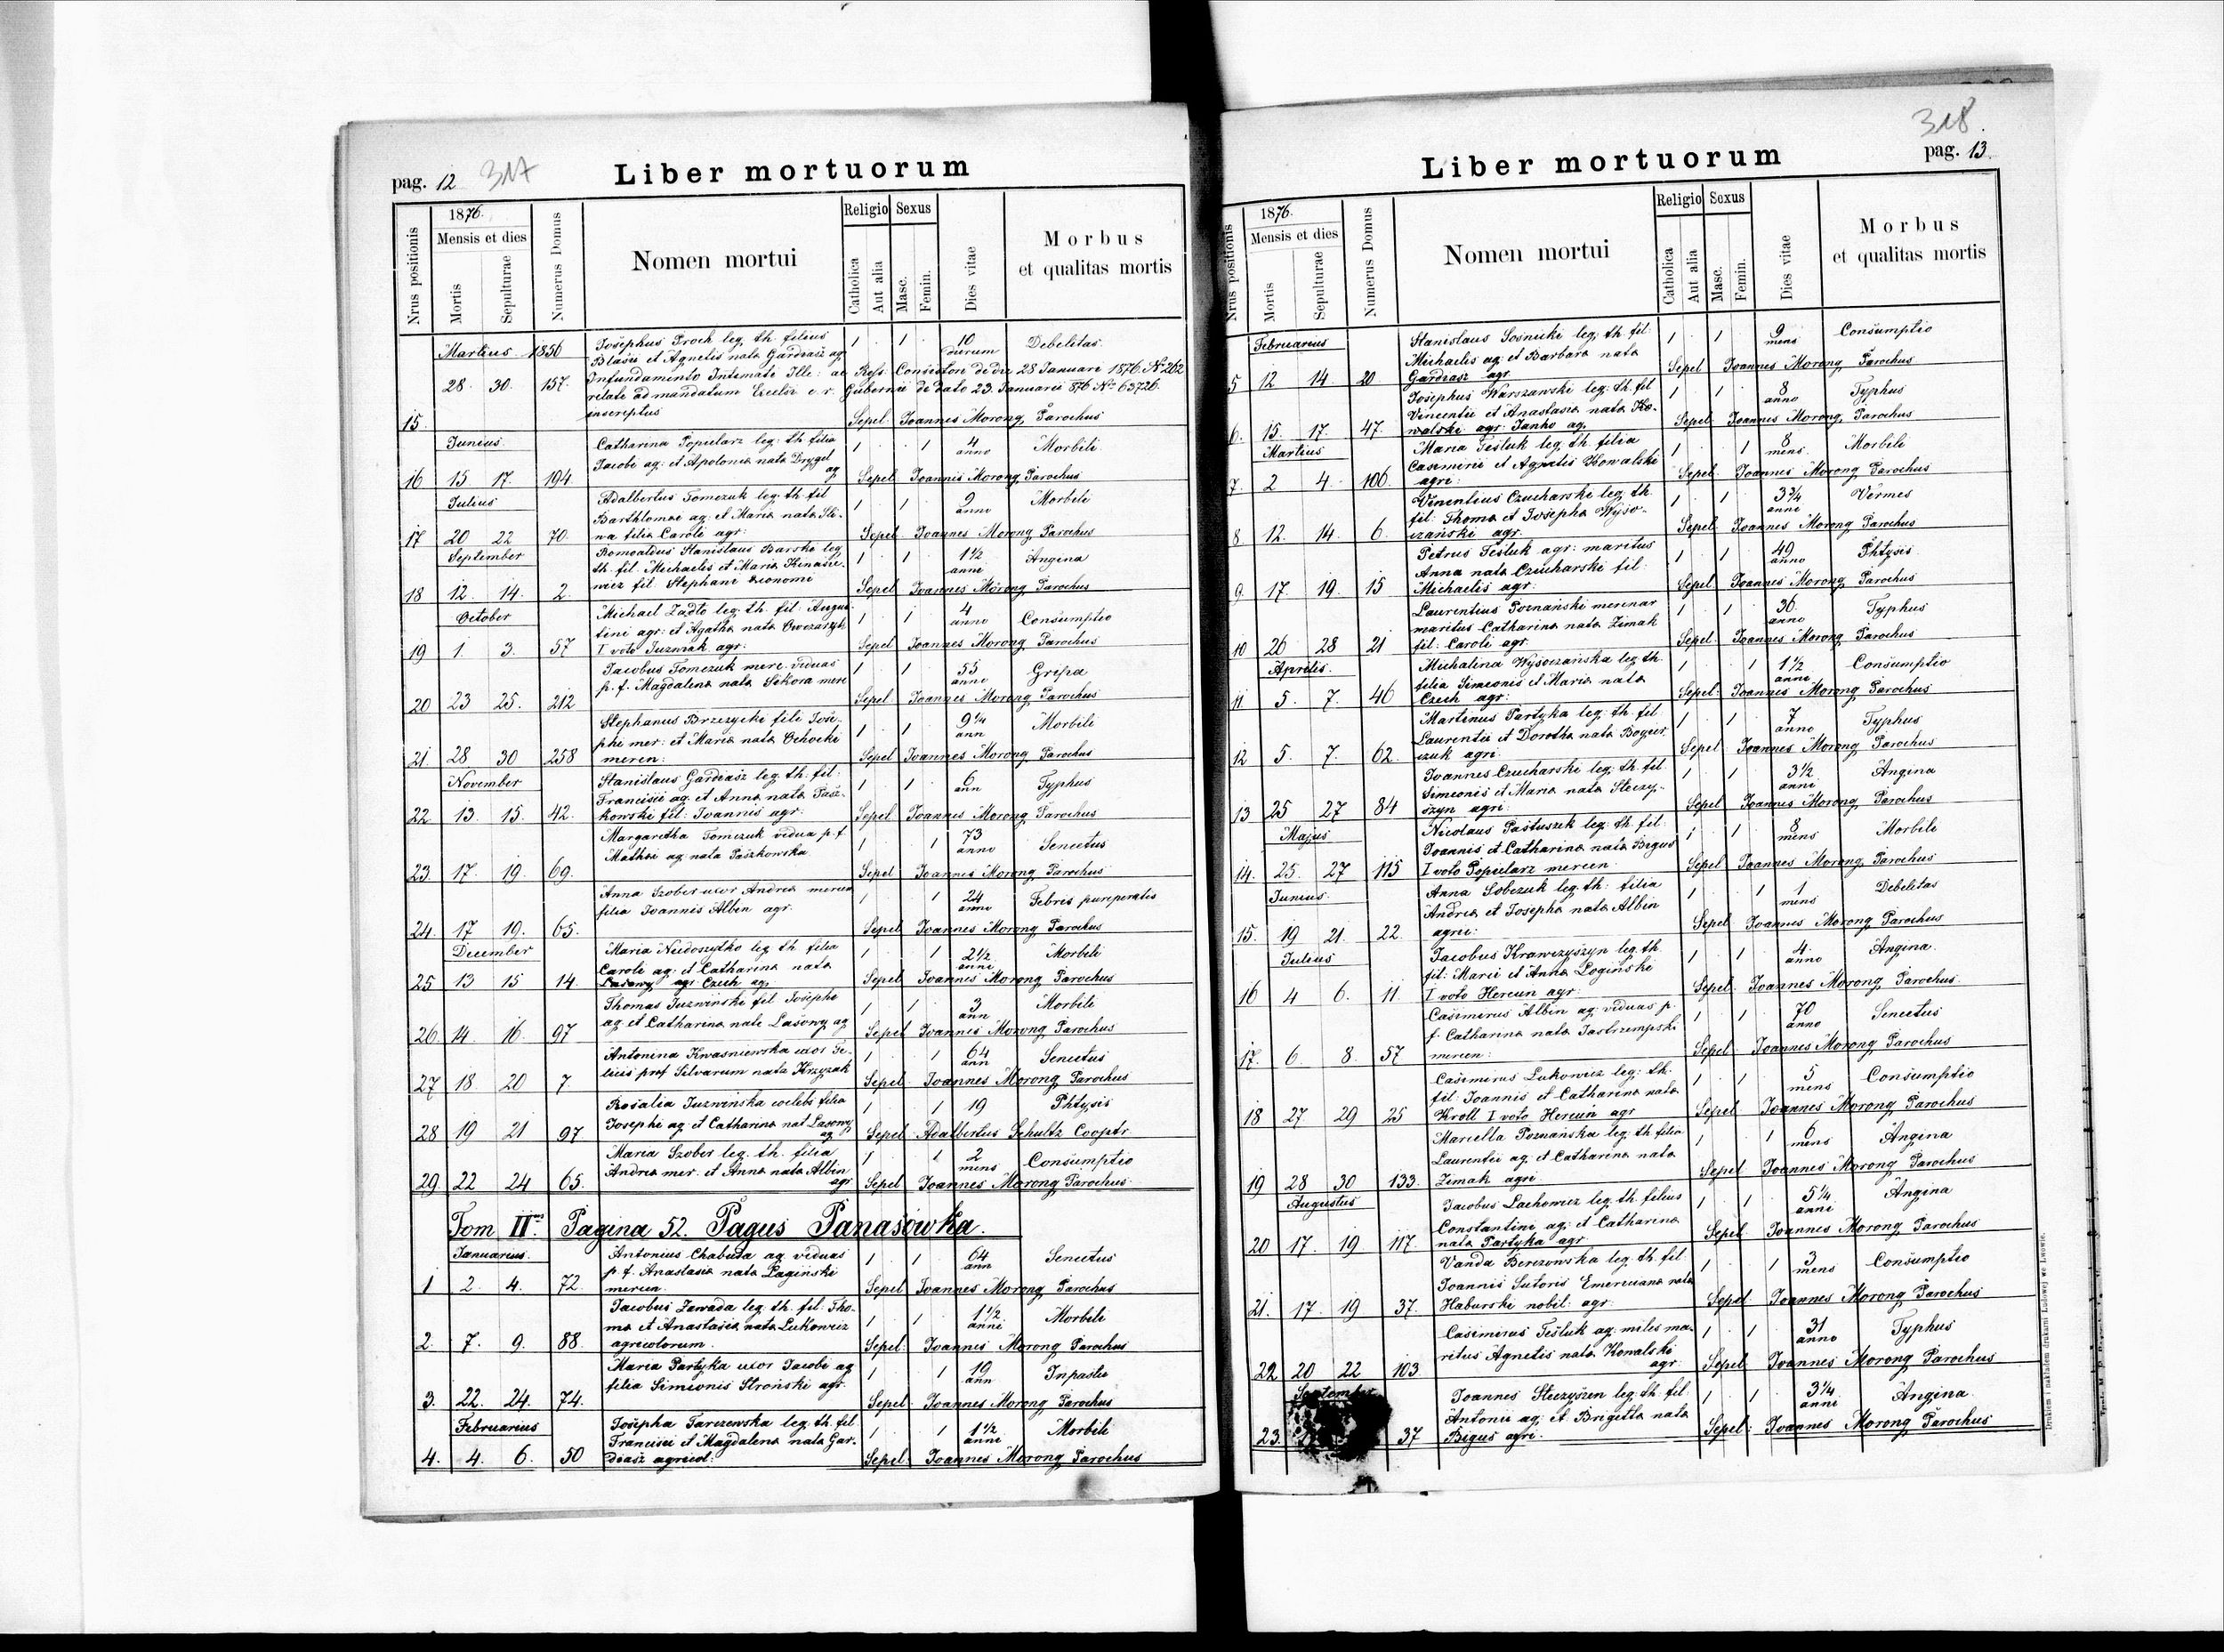 pag. 12 317
Liber mortuorum
Nrus positionis
1876.
Mensis et dies
Mortis
Sepulturae
Numerus Domus
Nomen mortui
Religio
Catholica
Aut alia
Sexus
Masc.
Femin.
Dies vitae
Morbus
et qualitas mortis
Martius 1856
Josephus Proch leg. th. filius
Blasii et Agnetis nata Gardiasz ag.
28 30. 157.
Infundamento Intimati Ille: ac Rss. Consistorii de die 28 Januari 1876 No 262
relate ad mandatum Excelsi c. r. Gubernii de dato 23. Januarii 876 No 63726.
inscriptus
1 1 10 dierum Debelitas
15. Sepel Joannes Morong, Parochus
Junius
Catharina Popularz leg. th. filia
Jacobi ag: et Apolonia nata Drygel
ag
1 1 4 anno Morbili
16 15 17. 194 Sepel Joannes Morong Parochus
Julius
Adalbertus Tomczuk leg. th. fil
Barthlomei ag: et Maria nata Sli-
wa filia Caroli agr:
1 1 2 anni Morbili
17 20 22 70. Sepel Joannes Morong Parochus
September
Romoaldus Stanislaus Barski leg.
th. fil. Michaelis et Maria Kinasie-
wicz fil. Stephani economi
1 1 1½ anni Angina
18 12. 14. 2. Sepel Joannes Morong Parochus
October
Michael Zadlo leg. th. fil: Augus
tini agr: et Agatha nata Owczarzyk
I voto Juzwiak agr:
1 1 4 anno Consumptio
19 1. 3. 57 Sepel Joannes Morong Parochus
Jacobus Tomczuk merc. viduus
p. f. Magdalena nata Sikora merc
1 1 55 anno Gripa
20 23 25. 212 Sepel Joannes Morong Parochus
Stephanus Brzezycki fili Jose-
phi mer: et Maria nata Ochocki
mercen:
1 1 9¼ ann Morbili
21. 28 30 258 Sepel Joannes Morong Parochus
November
Stanislaus Gardiasz leg. th. fil:
Francisci ag. et Anna nata Pasz-
kowski fil: Joannis agr:
1 1 6 ann Typhus
22 13. 15. 42. Sepel Joannes Morong Parochus
Margaretha Tomczuk vidua p. f
Mathei ag nata Paszkowska
1 1 73 anno Senectus
23. 17. 19. 69. Sepel Joannes Morong Parochus
Anna Szober uxor Andrea mercen
filia Joannis Albin agr.
1 1 24 anno Febris pureperalis
24. 17 19. 65. Sepel Joannes Morong Parochus
December
Maria Niedoszytko leg. th. filia
Caroli ag: et Catharina nata
Lasowy agr Czech ag.
1 1 2½ anni Morbili
25 13 15 14. Sepel Joannes Morong Parochus
Thomas Juzwinski fil Josephi
ag. et Catharina nate Lasowy ag
1 1 3 ann Morbili
26 14. 16. 97 Sepel Joannes Morong Parochus
Antonina Kwasniewska uxor Fe-
licis pref Silvarum nata Krzyzak
1 1 64 ann Senectus
27 18. 20 7. Sepel Joannes Morong Parochus
Rosalia Juzwinska coelebs filia
Josephi ag. et Catharina nat Lasowy
ag
1 1 19 Phtysis
28 19 21 97 Sepel Adalbertus Schultz Cooptr.
Maria Szober leg. th. filia
Andrea mer. et Anna nata Albin
agr
1 1 2 mens Consumptio
29 22 24 65. Sepel Joannes Morong Parochus
Tom II us Pagina 52. Pagus Panasowka.
Januarius.
Antonius Chabuda ag. viduus
p f. Anastasia nata Laginski
mercen.
1 1 64 ann Senectus
1 2. 4. 72. Sepel Joannes Morong Parochus
Jacobus Zawada leg. th. fil: Tho-
ma et Anastasia nata Lukowicz
agricolorum.
1 1 1½ anni Morbili
2. 7. 9. 88. Sepel: Joannes Morong Parochus
Maria Partyka uxor Jacobi ag
filia Simeonis Stronski agr.
1 1 19 ann Inpastu
3. 22. 24. 74. Sepel Joannes Morong Parochus
Februarius
Josepha Tarczewska leg. th. fil.
Francisci et Magdalena nata Gar-
diasz agricol:
1 1 1½ anni Morbili
4. 4. 6. 50 Sepel Joannes Morong Parochus
318.
Liber mortuorum
pag. 13.
Nrus positionis
1876.
Mensis et dies
Mortis
Sepulturae
Numerus Domus
Nomen mortui
Religio
Catholica
Aut alia
Sexus
Masc.
Femin.
Dies vitae
Morbus
et qualitas mortis
Februarius
Stanislaus Sosnicki leg: th. fil:
Michaelis ag: et Barbara nata
Gardiasz agr.
1 1 9 mens Consumptio
5 12 14. 20 Sepel Joannes Morong Parochus
Josephus Warszawski leg: th. fil
Vincentii et Anastasia nata Ko-
walski agr: Janko ag.
1 1 8 anno Typhus
6. 15. 17. 47. Sepel Joannes Morong, Parochus
Martius
Maria Tesluk leg. th. filia
Casimiri et Agnetis Kowalski
agri:
1 1 8 mens Morbili
7 2 4. 106. Sepel Joannes Morong Parochus
Vincentius Czucharski leg. th.
fil: Thoma et Josepha Wyso-
czanski agr.
1 1 3¾ anni Vermes
8 12. 14. 6. Sepel Joannes Morong Parochus
Petrus Tesluk agr: maritus
Anna nata Czucharski fil:
Michaelis agr:
1 1 49 anno Phtysis
9 17. 19. 15 Sepel Joannes Morong Parochus
Laurentius Poznanski mercenar
maritus Catharina nata Zimak
fil: Caroli agr.
1 1 36. anno Typhus
10 26 28 21 Sepel Joannes Morong Parochus
Aprilis.
Michalina Wysoczanska leg. th.
filia Simeonis et Maria nata
Czech agr:
1 1 1½ anni Consumptio
11 5. 7. 46 Sepel: Joannes Morong Parochus
Martinus Partyka leg: th. fil
Laurentii et Dorotha nata Bojar
czuk agri.
1 1 7 anno Typhus
12 5. 7. 62. Sepel Joannes Morong Parochus
Joannes Czucharski leg. th. fil
Simeonis et Maria nata Steczy-
szyn agri:
1 1 3½ anni Angina
13 25 27 84 Sepel Joannes Morong Parochus
Majus
Nicolaus Pastuszek leg: th. fil:
Joannis et Catharina nata Bigus
I voto Popularz mercen
1 1 8 mens Morbili
14. 25. 27 115 Sepel Joannes Morong Parochus
Junius.
Anna Sobczuk leg. th: filia
Andrea et Josepha nata Albin
agrii:
1 1 1 mens Debelitas
15. 19 21. 22. Sepel Joannes Morong Parochus
Julius
Jacobus Krawczyszyn leg. th
fil: Marci et Anna Loginski
I voto Hercun agr.
1 1 4. anno Angina.
16 4 6. 11. Sepel. Joannes Morong Parochus.
Casimirus Albin ag: viduus p.
f. Catharina nata Jastrzempski
mercen:
1 1 70 anno Senectus
17. 6. 8. 57 Sepel. Joannes Morong Parochus
Casimirus Lukowicz leg: th.
fil: Joannis et Catharina nata
Kroll I voto Hercun agr
1 1 5 mens Consumptio
18 27 29 25 Sepel Joannes Morong Parochus
Mariella Poznanska leg. th filia
Laurentii ag. et Catharina nata
Zimak agri.
1 1 6 mens Angina
19 28 30 133. Sepel Joannes Morong Parochus
Augustus
Jacobus Lachowicz leg. th. filius
Constantini ag: et Catharina
nata Partyka agr
1 1 5¼ anni Angina
20 17. 19 117. Sepel. Joannes Morong Parochus
Vanda Berezowska leg. th. fil:
Joannis Sutoris Emercuana nata
Haburski nobil: agr:
1 1 3 mens Consumptio
21. 17. 19 37. Sepel Joannes Morong Parochus
Casimirus Tesluk ag: miles ma-
ritus Agnetis nata Kowalski
agr:
1 1 31 anno Typhus
22 20 22 103 Sepel Joannes Morong Parochus
September
Joannes Steczyszen leg. th. fil
Antonii ag. et Brigitta nata
Bigus agri.
1 1 3¼ anni Angina.
23. 37 Sepel: Joannes Morong Parochus
Drukiem i nakładem drukarni Ludowej we Lwowie.